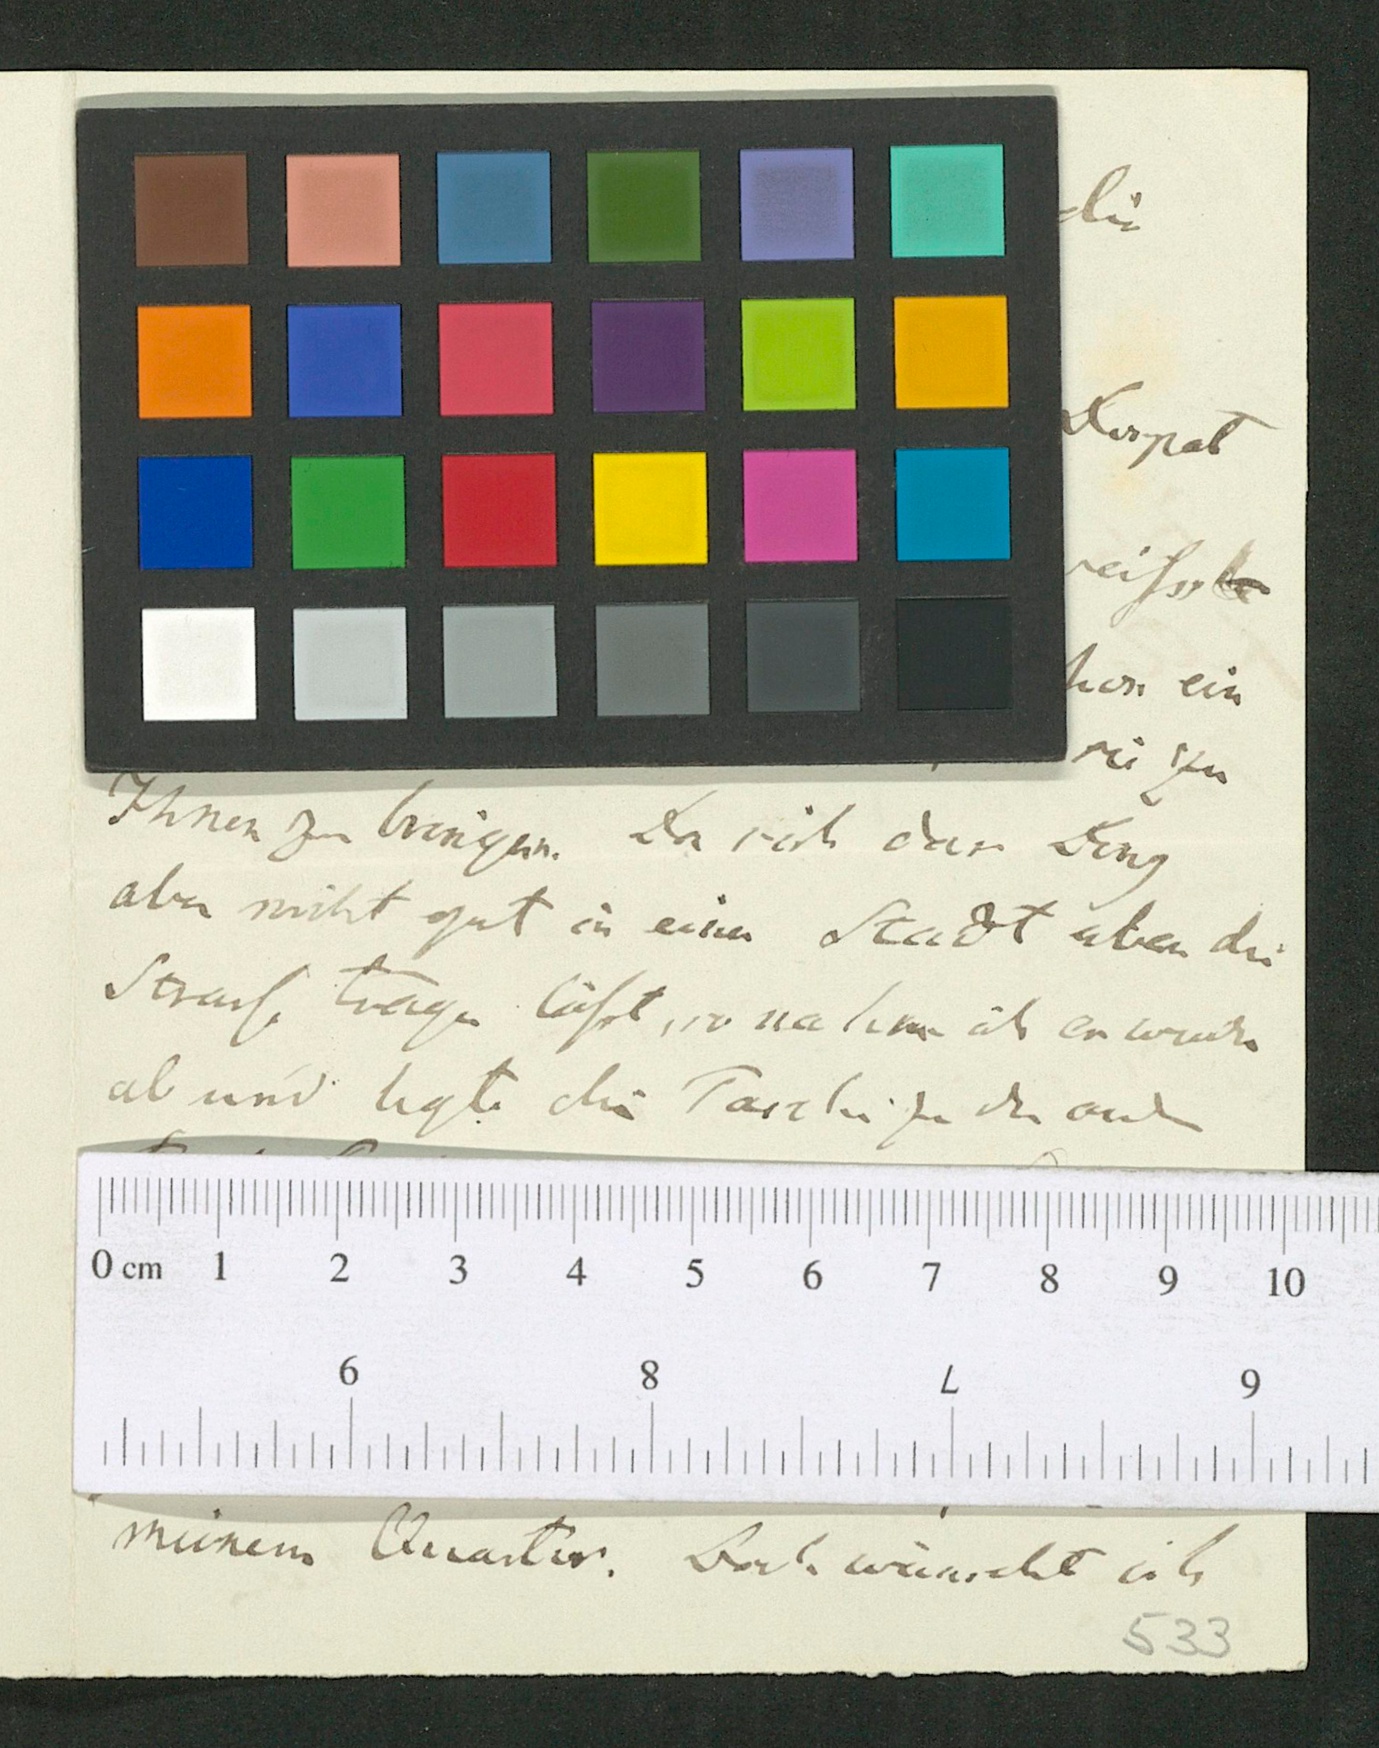 die
Dorpat
hon ein
sie zu
Ihnen zu bringen. Da sich das Ding
aber nicht gut in einer Stadt über die
Straße tragen läßt, so nahm ich es wieder
ab und legte die Tasche zu den and
0 cm 1 2 3 4 5 6 7 8 9 10
9 8 7 6
meinem Quartier. Doch wünscht ich
533